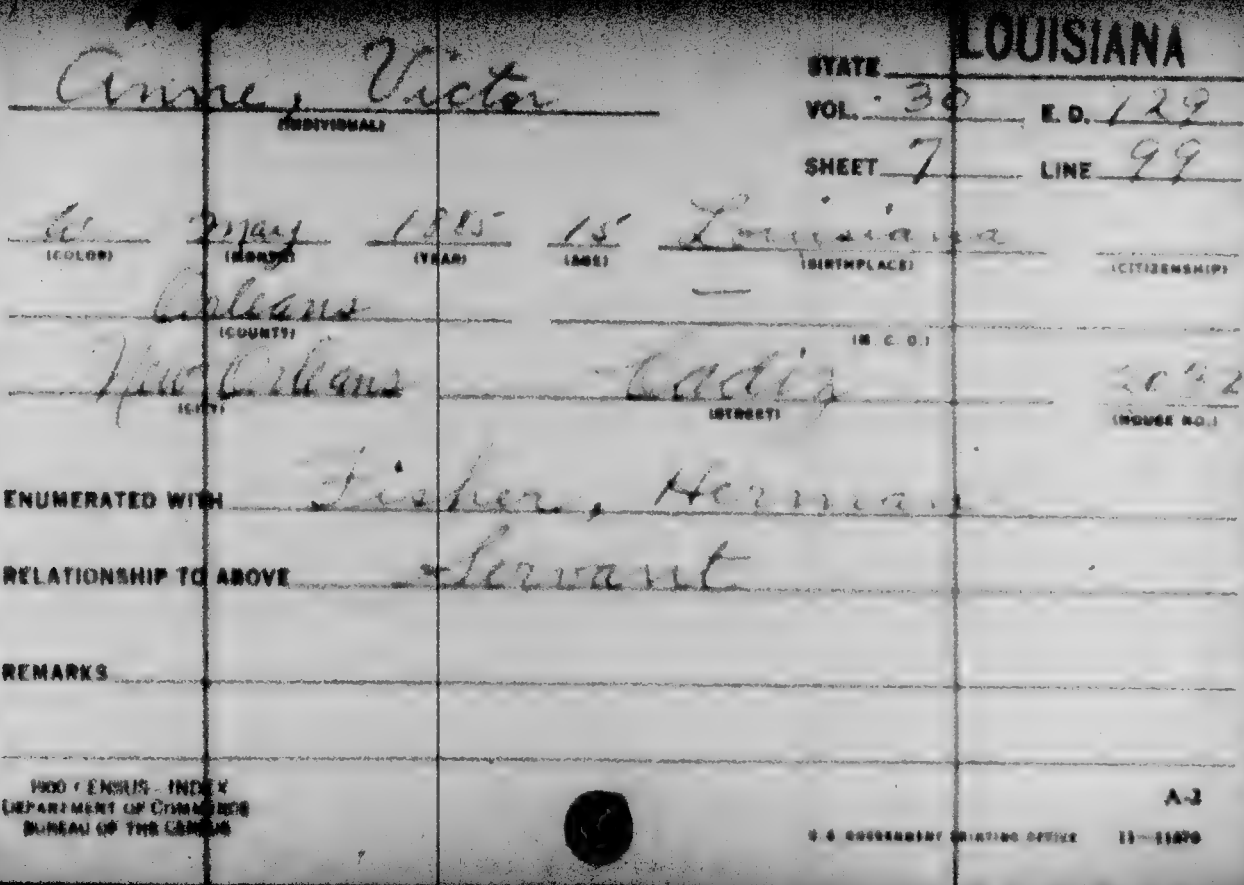 LOUISIANA
STATE
Anne, Victor
(INDIVIDUAL)
VOL. 30 E. D. 129
SHEET 7 LINE 99
W May 1885 15 Louisiana
(COLOR) (MONTH) (YEAR) (AGE) (BIRTHPLACE) (CITIZENSHIP)
Orleans —
(COUNTY) (M. C. D.)
New Orleans Cadiz
(CITY) (STREET) (HOUSE NO.)
ENUMERATED WITH Fisher, Herman
RELATIONSHIP TO ABOVE Servant
REMARKS
1900 CENSUS - INDEX
DEPARTMENT OF COMMERCE
BUREAU OF THE CENSUS
A-2
U.S. GOVERNMENT PRINTING OFFICE